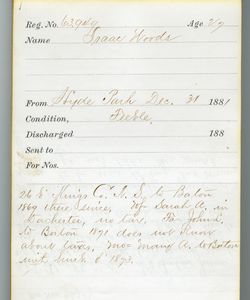 Reg. No. 63949 Age 27
Name Isaac Woods
From Hyde Park Dec. 31 1881
Condition, Feeble.
Discharged 188
Sent to
For Nos.
26 b Kings Co. N. S. to Boston
1869 there since, Wf Sarah A. in
Dorchester, no Fa John
to Boston 1871 does not know
about taxes, mo Mary A. to Boston
with 1873.